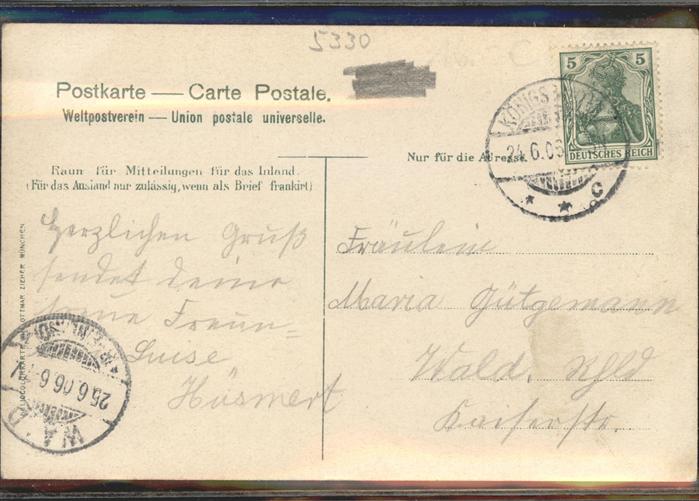 5330
Postkarte — Carte Postale.
Weltpostverein — Union postale universelle.
Raum für Mitteilungen für das Inland.
(Für das Ausland nur zulässig, wenn als Brief frankirt)
Nur für die Adresse.
5 5
DEUTSCHES REICH
KÖNIGS
24.6.06
* * C
Herzlichen Gruß
sendet deine
Freun=
Luise
Hüsmert
Fräulein
Maria Gütgemann
Wald, Rhld
Kaiserstr.
OTTMAR ZIEHER MÜNCHEN
WALD
25.6.06